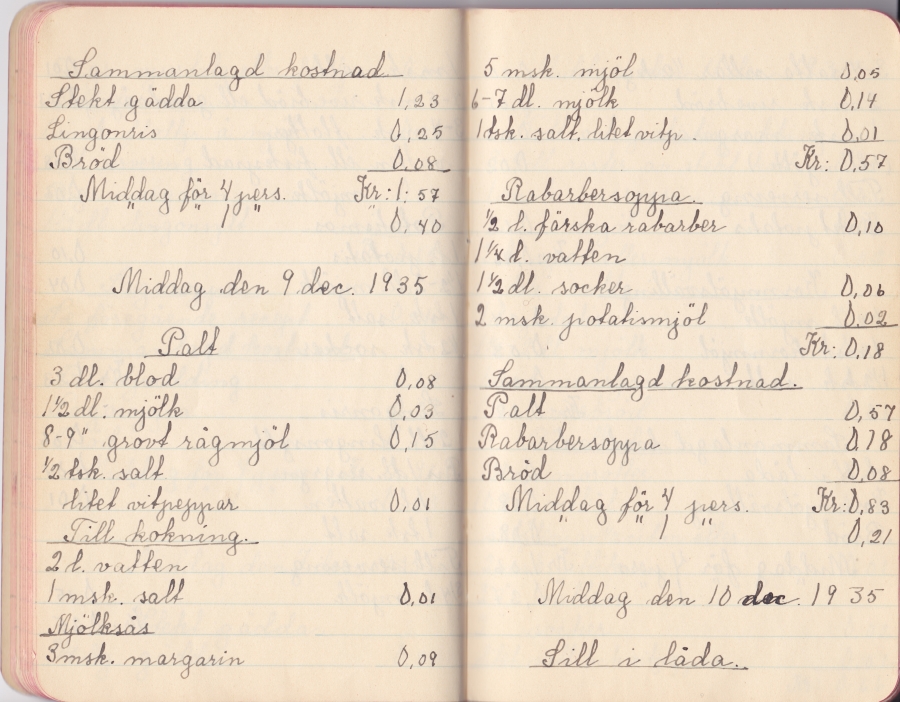 Sammanlagd kostnad
Stekt gädda 1,23
Lingonris 0,25
Bröd 0,08
Middag för 4 pers. Kr: 1: 57
" " 1 " 0,40
Middag den 9 dec. 1935
Palt
3 dl. blod 0,08
1 1/2 dl. mjölk 0,03
8-9 " grovt rågmjöl 0,15
1/2 tsk. salt
litet vitpeppar 0,01
Till kokning.
2 l. vatten
1 msk. salt 0,01
Mjölksås
3 msk. margarin 0,09
5 msk. mjöl 0,05
6-7 dl. mjölk 0,14
1 tsk. salt, litet vitp. 0,01
Kr: 0,57
Rabarbersoppa.
1/2 l. färska rabarber 0,10
1 1/4 l. vatten
1 1/2 dl. socker 0,06
2 msk. potatismjöl 0.02
Kr: 0,18
Sammanlagd kostnad.
Palt 0,57
Rabarbersoppa 0,18
Bröd 0,08
Middag för 4 pers. Kr: 0,83
" " 1 " 0,21
Middag den 10 dec. 1935
Sill i låda.